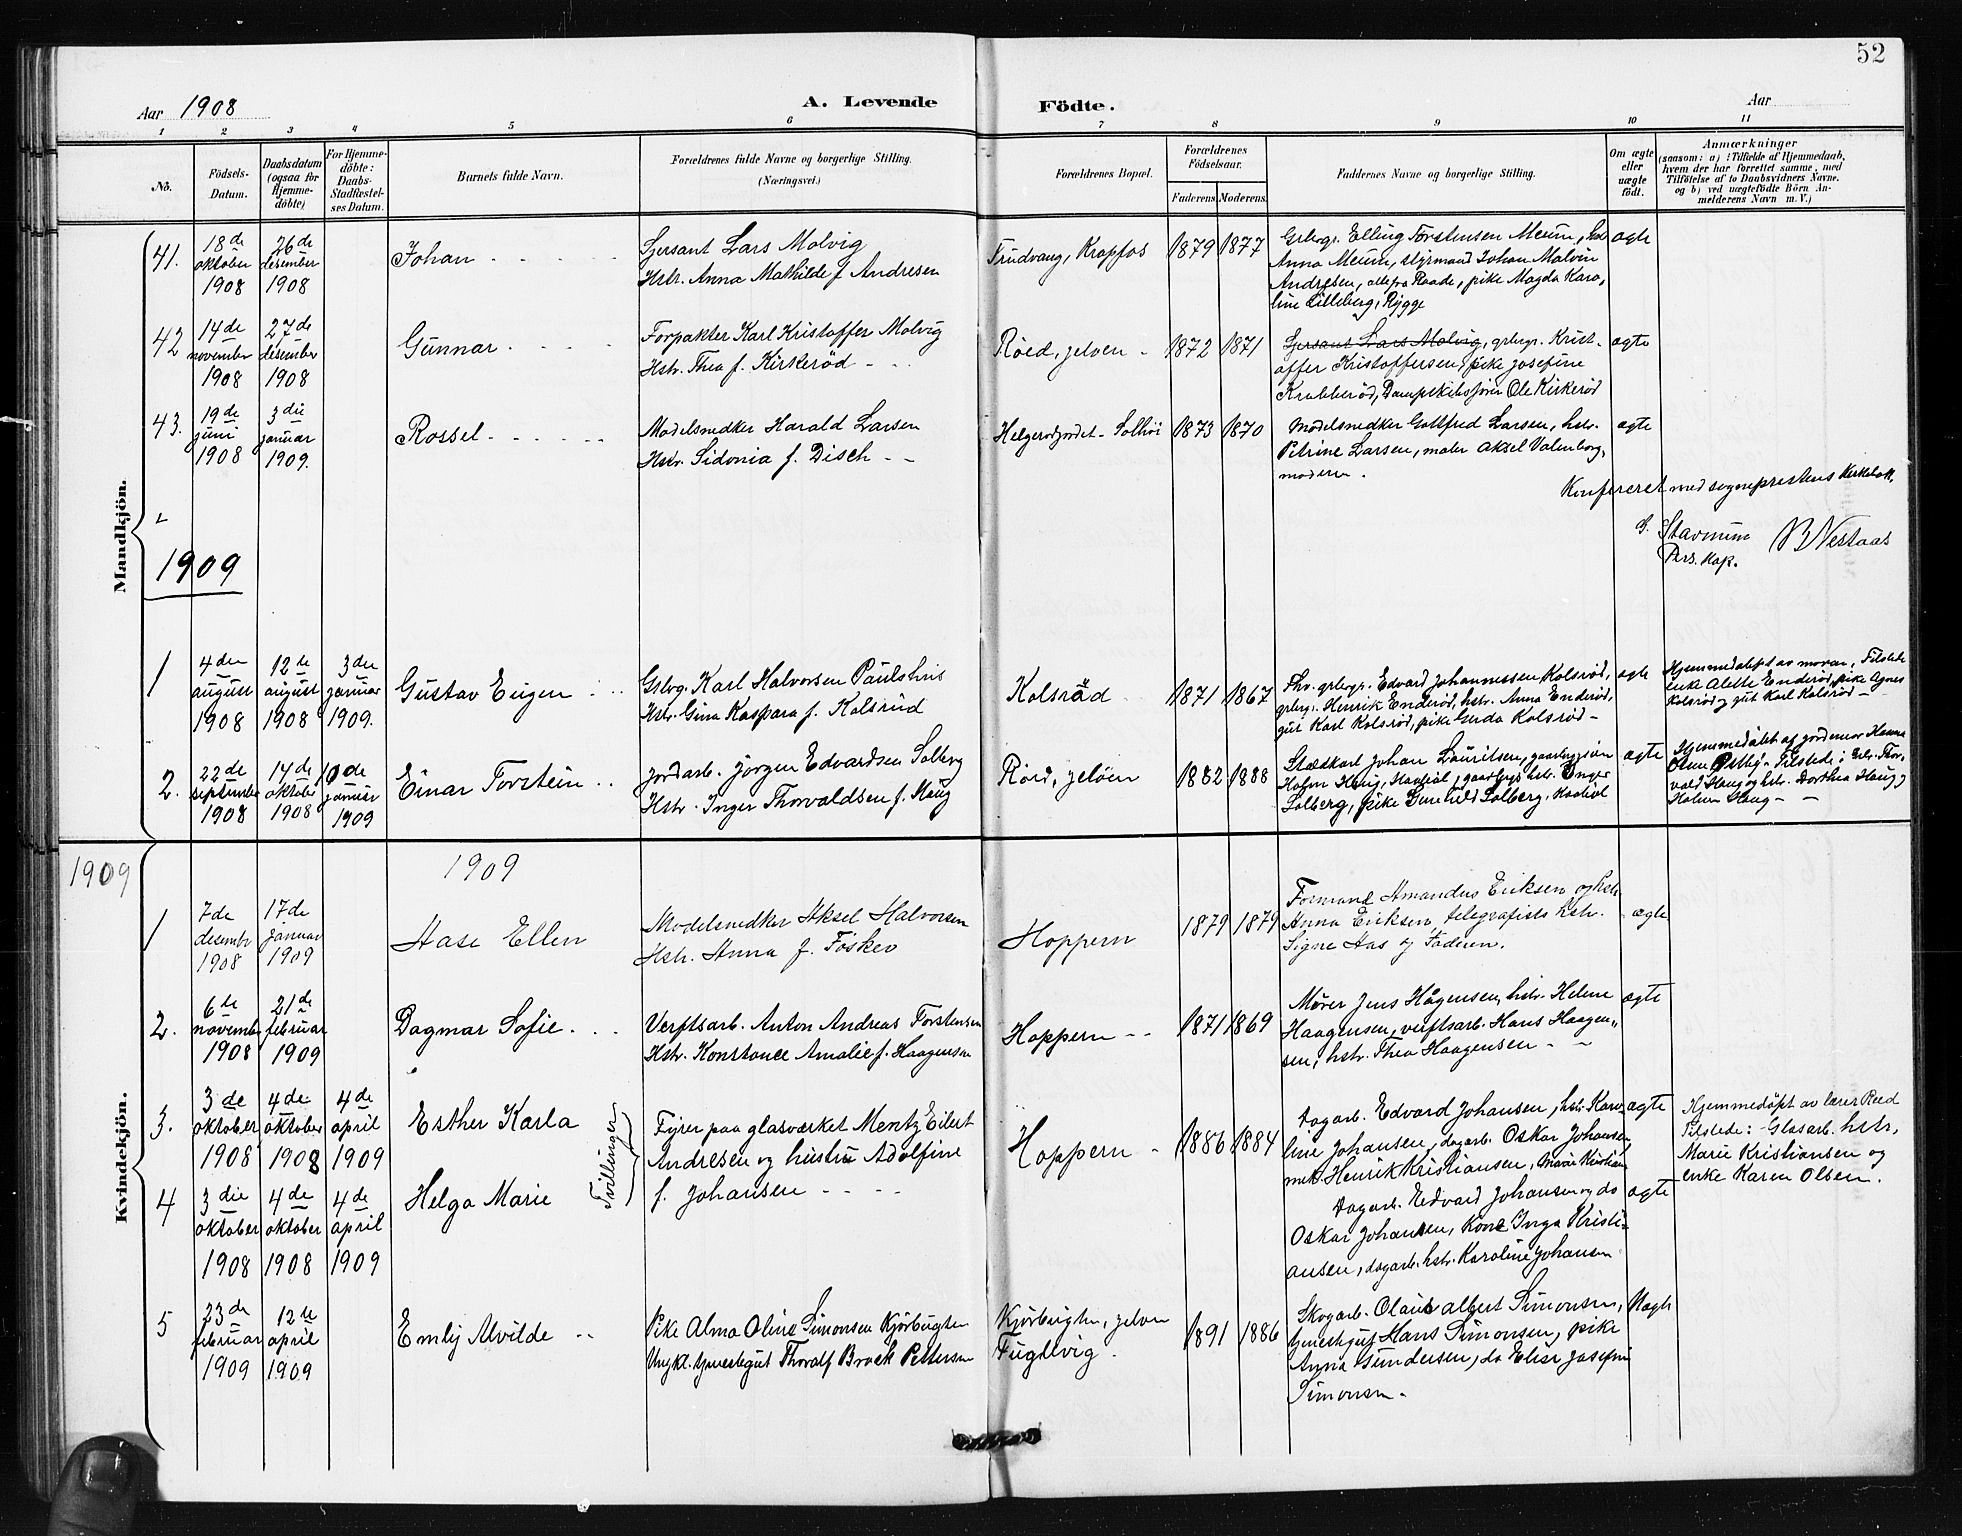 52
Aar 1908
A. Levende Födte.
Aar
1 2 3 4 5 6 7 8 9 10 11
No.
Födsels-
Datum.
Daabsdatum
(ogsaa for
Hjemme-
döbte)
For Hjemme-
döbte:
Daabs-
Stadfæstel-
ses Datum.
Barnets fulde Navn.
Forældrenes fulde Navne og borgerlige Stilling.
(Næringsvei.)
Forældrenes Bopæl.
Forældrenes
Födselsaar.
Faderens. Moderens.
Faddernes Navne og borgerlige Stilling.
Om ægte
eller
uægte
født.
Anmærkninger
(saasom: a) i Tilfælde af Hjemmedaab,
hvem der har forrettet samme, med
Tilføielse af to Daabsvidners Navne.
og b) ved uægtefödte Börn An-
melderens Navn m. V.)
Mandkjön.
41.
18de
oktober
1908
26de
desember
1908
Johan
Sersant Lars Molvig
Hstr. Anna Mathilde f. Andresen
Trudvang, Krapfos
1879 1877
Grbgr. Elling Torstensen Meum,
Anna Meum, styrmand Johan Malvin
Andresen, alle fra Raade, pike Magda Karo,
line Lilleberg, Rygge
ægte
42
14de
november
1908
27de
desember
1908
Gunnar
Forpakter Karl Kristoffer Molvig
Hstr. Thea f. Kirkeröd
Röed, jelöen
1872 1871
Sersant Lars Molvig, grbgr. Krist-
offer Kristoffersen, pike Josefine
Krabberöd, Dampskibsförer Ole Kirkeröd
ægte
43.
19de
juni
1908
3die
januar
1909.
Rossel
Modelsnedker Harald Larsen
Hstr. Sidonia f. Disch
Helgerödjordet - Solhöi
1873 1870
Modelsnedker Gottfred Larsen, hstr.
Petrine Larsen, maler Aksel Valenborg,
moderen.
ægte
Konfereret med sogneprestens Kirkebok.
Stavnum B Nestaas
Pers. Kap.
1909
1
4de
august
1908
12te
august
1908
3die
januar
1909.
Gustav Eugen
Grbgr. Karl Halvorsen Paulshus
Hstr. Gina Kaspara f. Kolsrud
Kolsröd
1871 1867
Fhv. grbgr. Edvard Johannessen Kolsröd,
grbgr. Henrik Enderöd, hstr. Anna Enderöd,
gut Karl Kolsröd, pike Gerda Kolsröd
ægte
Hjemmedøpt av moren, Tilstede
enke Alette Enderöd, pike Agnes
Kolsröd og gut Karl Kolsröd
2.
22de
september
1908
14de
oktober
1908
10de
januar
1909
Einar Torstein
Jordarb. Jörgen Edvardsen Solberg
Hstr. Inger Thorvaldsen f. Haug
Röed, jelöen
1882 1888
Stadskarl Johan Lauritsen,
Halvor Haug, gaardbrgs. hstr. Inger
Solberg, pike Gunhild Solberg,
ægte
Hjemmedöbt af jordemor Hanna
Olsen Tilstede: Grbr. Thor-
vald Haug og hstr. Dorthea Haug og
Halvor Haug
Kvindekjön.
1909
1909
1
7de
desembr
1908
17de
januar
1909
Aase Ellen
Modelsnedker Aksel Halvorsen
Hstr. Anna f. Fösker
Hoppern
1879 1879
Formand Amandus Eriksen og hstr.
Anna Eriksen, telegrafists hstr.
Signe Aas og Faderen.
ægte
2.
6te
novembr
1908
21de
februar
1909
Dagmar Sofie
Verftsarb. Anton Andreas Torstensen
Hstr. Konstance Amalie f. Haagensen
Hoppern
1871 1869
Mörer Jens Hågensen, hstr. Helene
Haagensen, verftsarb. Hans Haagen-
sen, hstr. Thea Haagensen
ægte
3.
3de
oktober
1908
4de
oktober
1908
4de
april
1909
Esther Karla
Tvillinger
Fyrer paa glasværket Mentz Eilert
Andresen og hustru Adolfine
f. Johansen
Hoppern
1886 1884
Dagarb. Edvard Johansen, hstr. Karo-
line Johansen, dagarb. Oskar Johansen,
mek. Henrik Kristiansen, Marie Kristian
ægte
Hjemmedöpt av lærer Reed
Tilstede: Glasarb. hstr.
Marie Kristiansen og
enke Karen Olsen.
4
3die
oktober
1908
4de
oktober
1908
4de
april
1909
Helga Marie
Dagarb. Edvard Johansen og do
Oskar Johansen, Kone Inga Kristi-
ansen, dagarb. hstr. Karoline Johansen
ægte
5
23de
februar
1909
12te
april
1909
Emly Alvilde
Pike Alma Oline Simonsen Kjörbugten
Ungk. tjenestegut Thoralf Brock Pettersen
Kjörbugtn, jelöen
Fuglevig
1891 1886
Skogarb. Olaus Albert Simonsen,
tjenestegut Hans Simonsen, pike
Anna Gundersen, do Elise Josefine
Simonsen.
Uægte